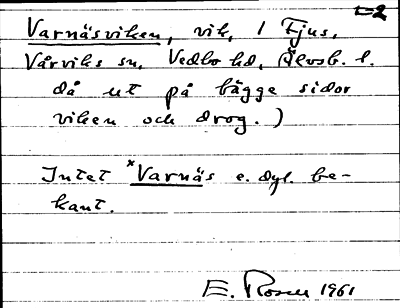 2
Varnäsviken, vik, i Tjus,
Vårviks sn, Vedbo hd, Älvsb. l.
då ut på bägge sidor
viken och drog.)
Intet *Varnäs e. dyl. be-
kant.
E. Rosell 1961